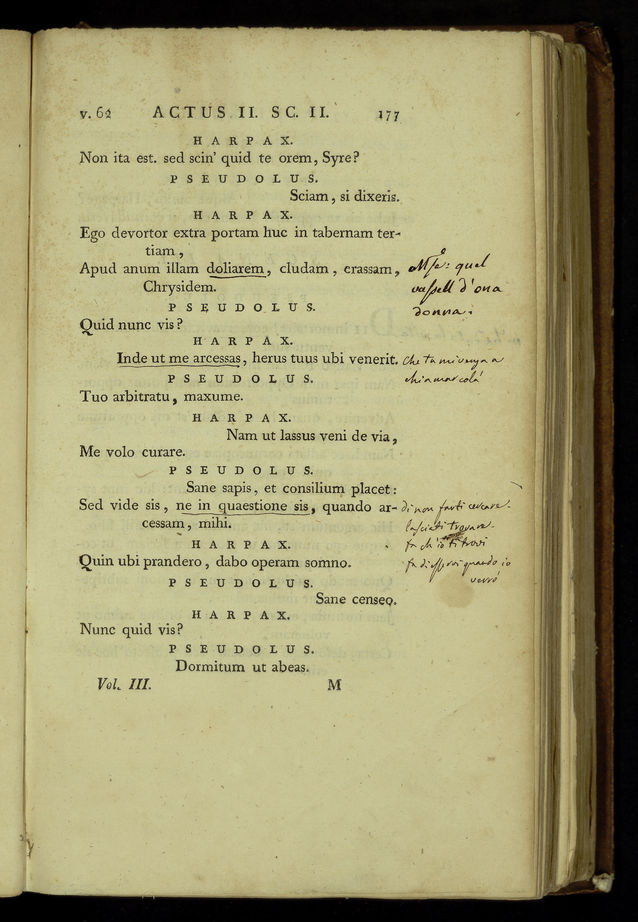 v. 62 ACTUS II. SC. II. 177
HARPAX.
Non ita est. sed scin' quid te orem, Syre?
PSEUDOLUS.
Sciam, si dixeris.
HARPAX.
Ego devortor extra portam huc in tabernam ter-
tiam,
Apud anum illam doliarem, cludam, crassam,
Chrysidem.
quel
vassell d'ona
donna.
PSEUDOLUS.
Quid nunc vis?
HARPAX.
Inde ut me arcessas, herus tuus ubi venerit.
che tu mi venga a
chiamar colà
PSEUDOLUS.
Tuo arbitratu, maxume.
HARPAX.
Nam ut lassus veni de via,
Me volo curare.
PSEUDOLUS.
Sane sapis, et consilium placet:
Sed vide sis, ne in quaestione sis, quando ar-
cessam, mihi.
di non farti cercare.
lasciati trovare.
fa ch'io ti trovi
fa di esser quando io
verrò
HARPAX.
Quin ubi prandero, dabo operam somno.
PSEUDOLUS.
Sane censeo.
HARPAX.
Nunc quid vis?
PSEUDOLUS.
Dormitum ut abeas.
Vol. III. M